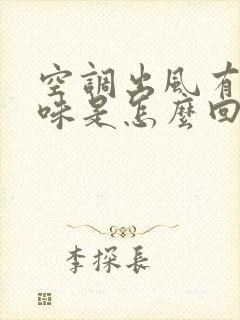 空調出風有
味是怎麼回
李探長